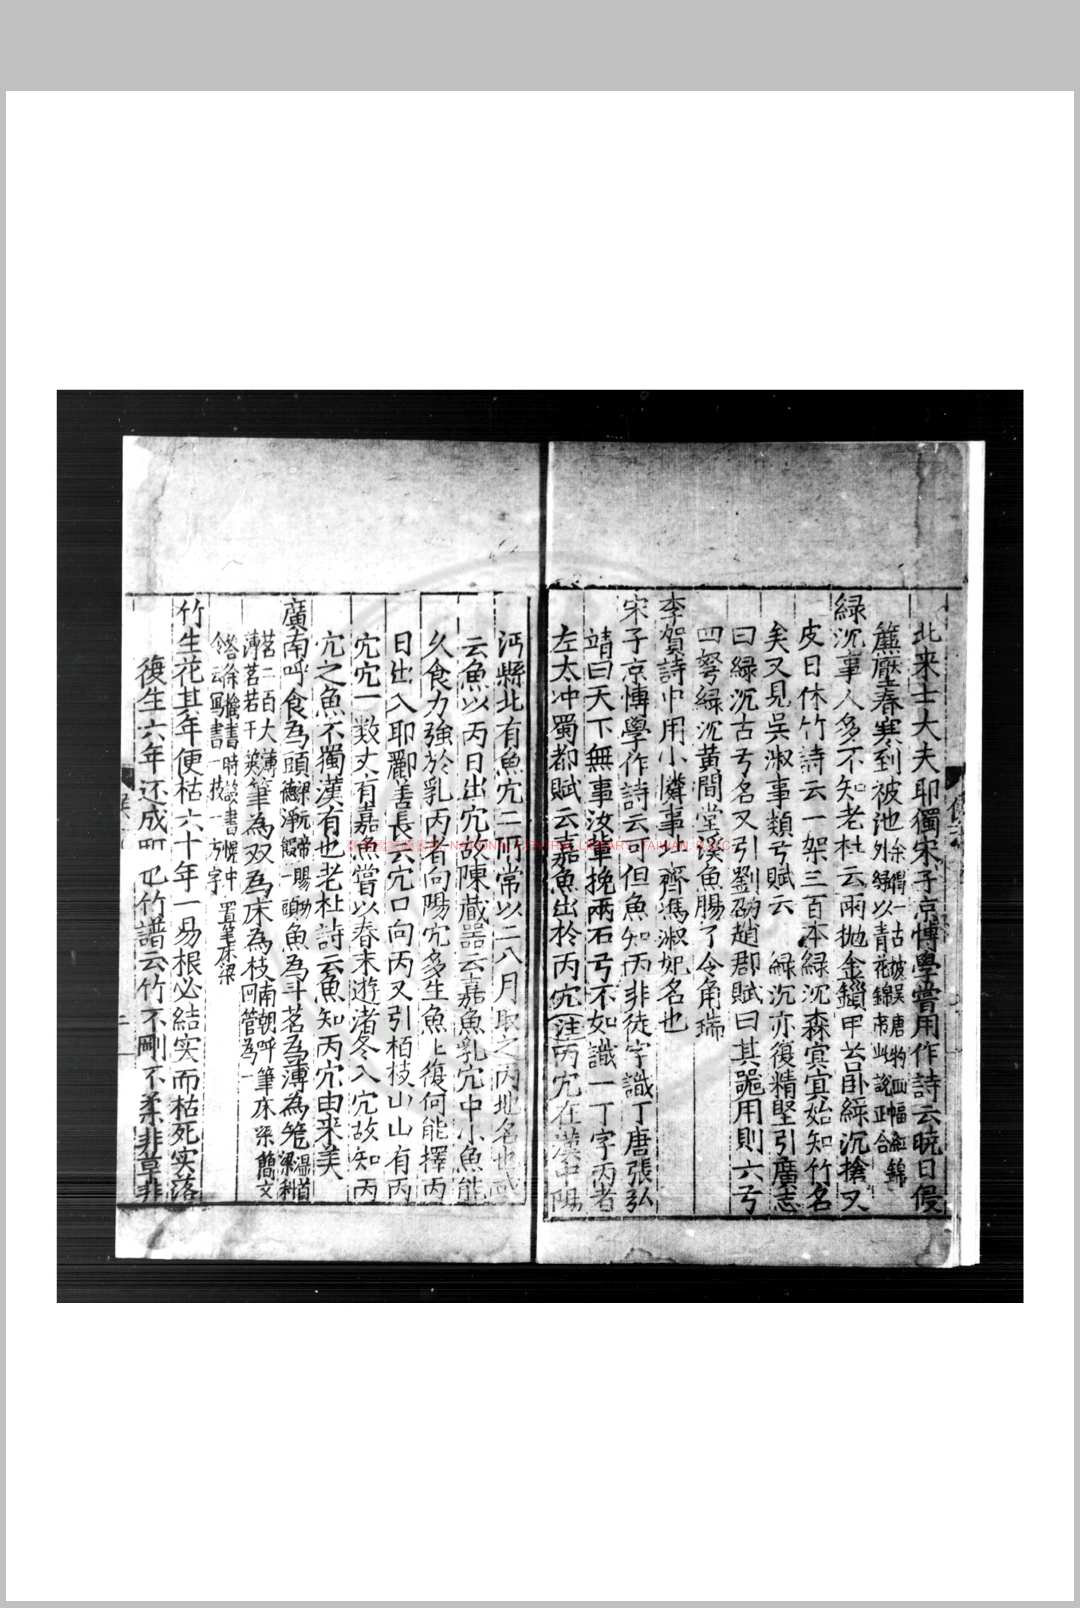 北来士大夫耶獨宋子京博學嘗用作詩云曉日侵
簾壓春寒到被池余得一古被吳唐物四幅紅錦外緣以青花錦帝此說正合
緑沉事人多不知老杜云雨抛金鎖甲苔臥緑沉槍又
皮日休竹詩云一架三百本緑沉森冥冥始知竹名
矣又見吳淑事類弓賦云緑沉亦復精堅引廣志
曰緑沉古弓名又引劉劭趙郡賦曰其器用則六弓
四弩緑沉黄間堂溪魚腸了令角端
李賀詩中用小憐事北齊馮淑妃名也
宋子京博學作詩云可但魚知丙非徒字識丁唐張弘
靖曰天下無事汝輩挽兩石弓不如識一丁字丙者
左太冲蜀都賦云嘉魚出於丙穴注丙穴在漢中陽
沔縣北有魚穴二所常以二八月取之丙地名也或
云魚以丙日出穴故陳蔵器云嘉魚乳穴中小魚能
久食力強於乳丙者向陽穴多生魚上復何能擇丙
日出入耶酈善長云穴口向丙又引栢枝山山有丙
穴穴一数丈有嘉魚嘗以春末遊渚冬入穴故知丙
穴之魚不獨漢有也老杜詩云魚知丙穴由来美
廣南呼食為頭魚為斗茗為薄為笔
茗二百大薄茗若干筆為双為床為枝南朝呼筆床梁簡文
答徐摛書時設書幌中置筆床梁令云寫書一枝一万字
竹生花其年便枯六十年一易根必結实而枯死实落
復生六年还成町竹譜云竹不剛不柔非草非